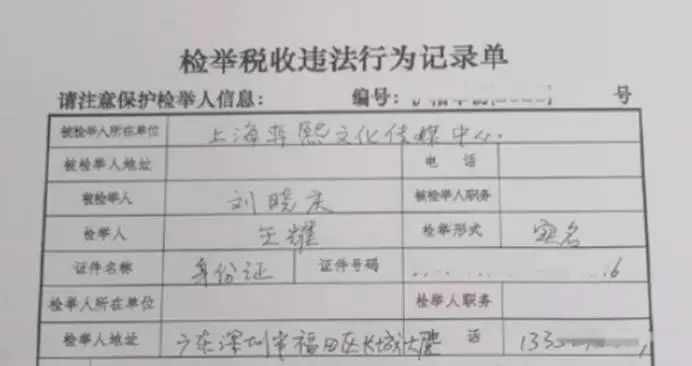 检举税收违法行为记录单
请注意保护检举人信息： 编号： 号
被检举人所在单位 上海弄熙文化传媒中心
被检举人地址 电 话
被检举人 刘晓庆 被检举人职务
检举人 王耀 检举形式 实名
证件名称 身份证 证件号码 16
检举人所在单位 检举人职务
检举人地址 广东深圳市福田区长城大厦 话 133